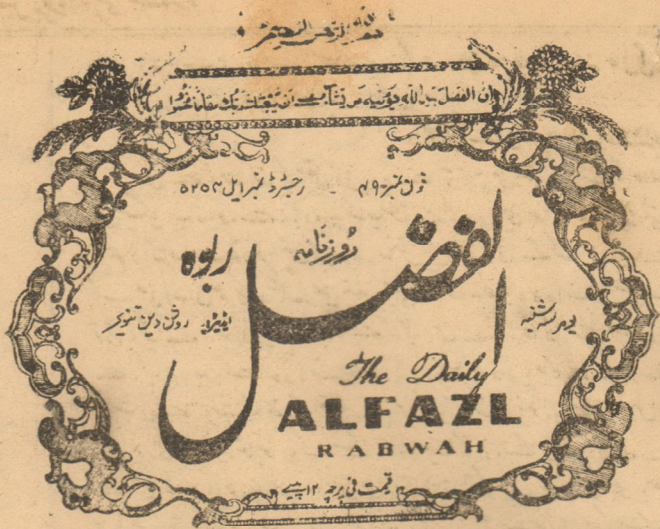 بسم الله الرحمن الرحيم
ان الفضل بيد الله يؤتيه من يشاء عسى ان يبعثك ربك مقاما محمودا
فون نمبر ۴۹ - رجسٹرڈ نمبر ایل ۵۲۵۴
روزنامہ
الفضل
ربوہ
یوم سہ شنبہ
ایڈیٹر روشن دین تنویر
The Daily
ALFAZL
RABWAH
قیمت فی پرچہ ۱۲ پیسے